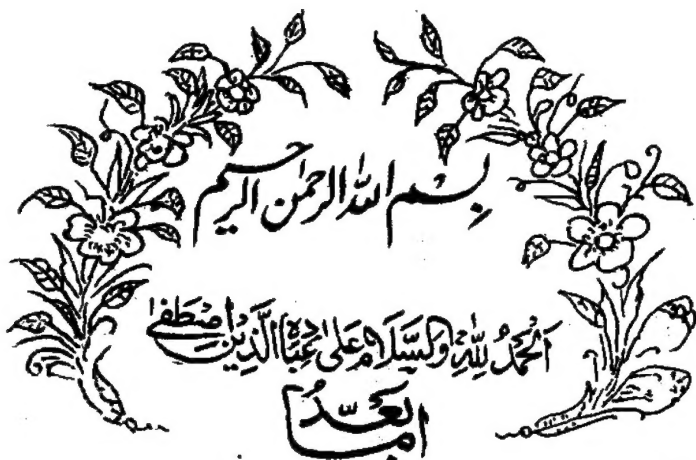 بسم اللہ الرحمٰن الرحیم
اَلْحَمْدُ لِلّٰهِ وَالسَّلَامُ عَلٰى عِبَادِهِ الَّذِيْنَ اصْطَفٰى
اما بعدُ